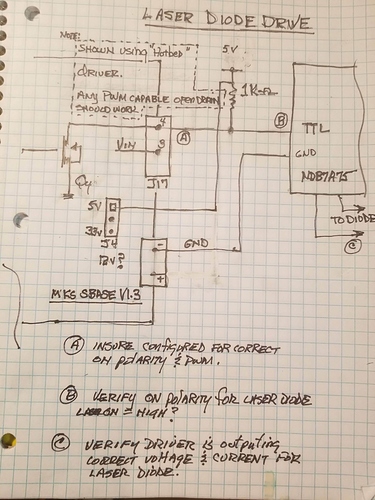 LASER DIODE DRIVE
NOTE:
SHOWN USING "HOTBED"
DRIVER.
ANY PWM CAPABLE OPEN DRAIN
SHOULD WORK.
5V
1K
A
B
TTL
GND
NDB7A75
4
VIN
3
J17
Q4
5V
3.3V
J4
12V?
-
+
GND
TO DIODE
C
MKS SBASE V1.3
A INSURE CONFIGURED FOR CORRECT
ON POLARITY & PWM.
B VERIFY ON POLARITY FOR LASER DIODE
= HIGH?
C VERIFY DRIVER IS OUTPUTING
CORRECT VOLTAGE & CURRENT FOR
LASER DIODE.